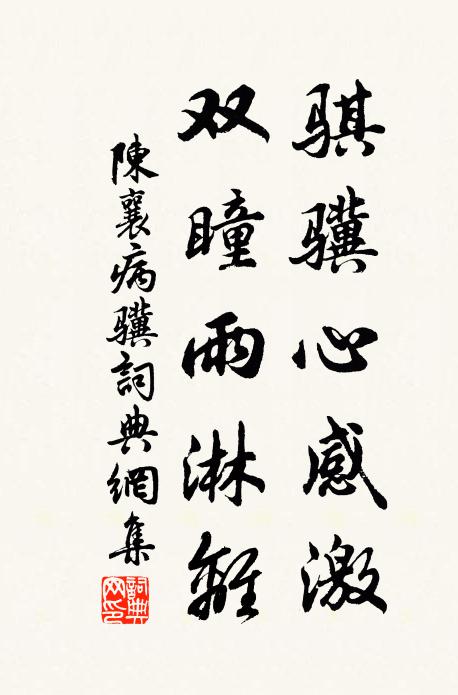 骐骥心感激
双瞳雨淋離
陳襄病骥詞典網集
詞典
网印